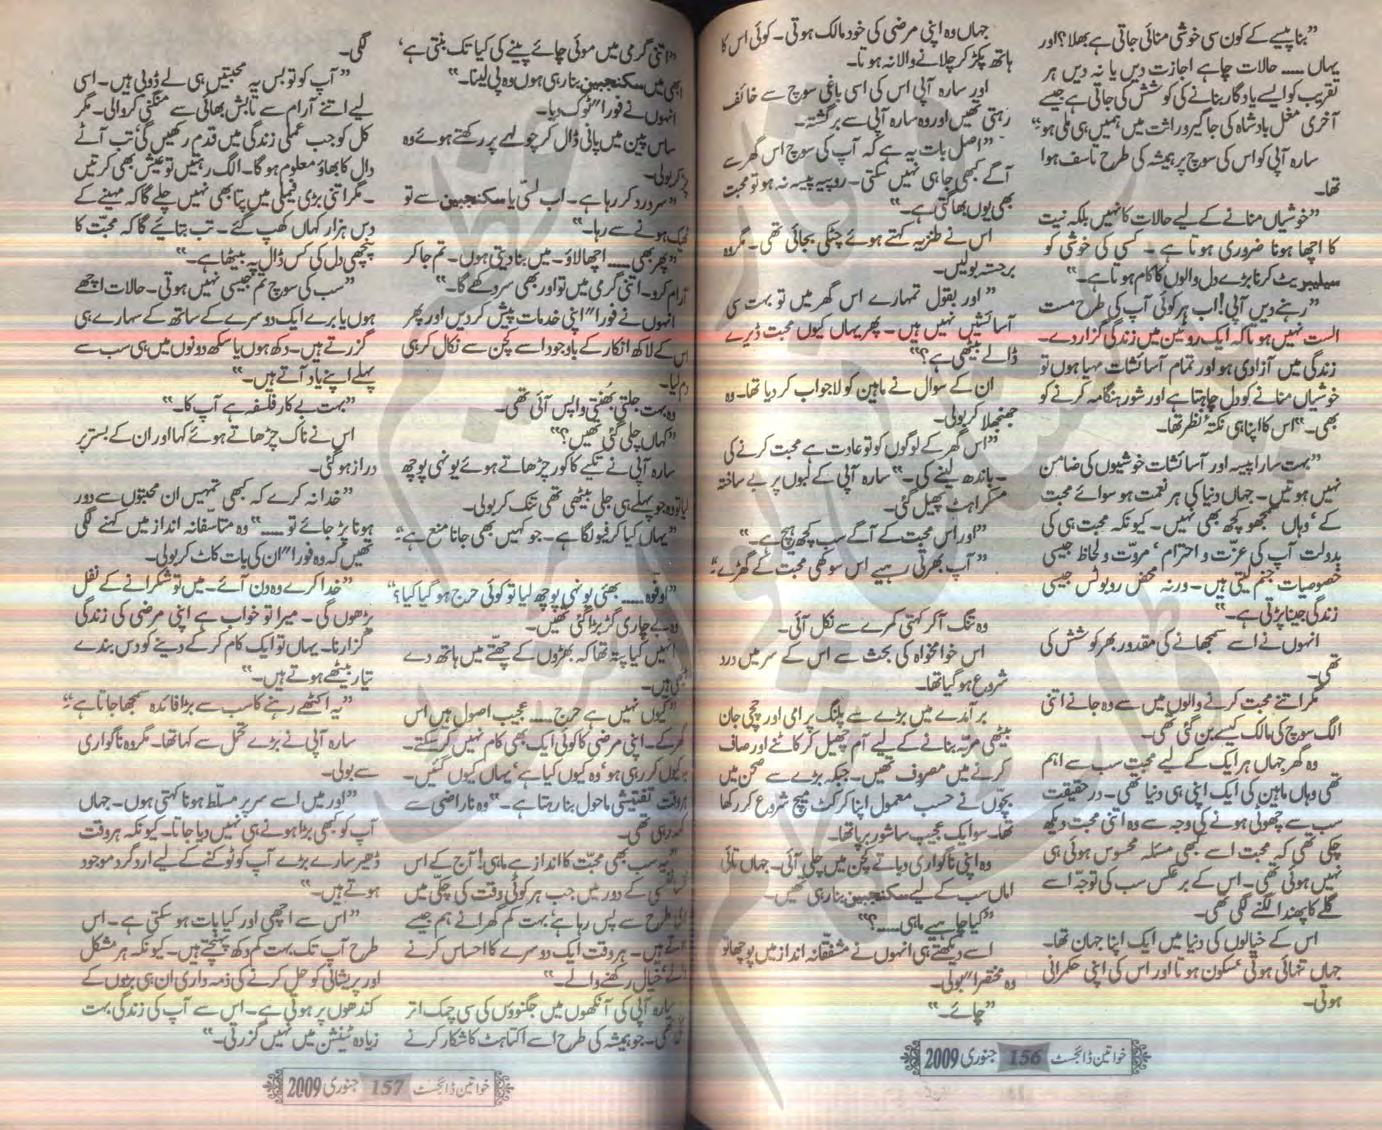 ”بنا پیسے کے کون سی خوشی منائی جاتی ہے بھلا؟ اور
یہاں ۔۔۔۔ حالات چاہے اجازت دیں یا نہ دیں ہر
تقریب کو ایسے یادگار بنانے کی کوشش کی جاتی ہے جیسے
آخری مغل بادشاہ کی جاگیر وراثت میں ہمیں ہی ملی ہو“
سارہ آپی کو اس کی سوچ پر ہمیشہ کی طرح تاسف ہوا
تھا۔
”خوشیاں منانے کے لیے حالات کا نہیں بلکہ نیت
کا اچھا ہونا ضروری ہوتا ہے۔ کسی کی خوشی کو
سیلیبریٹ کرنا بڑے دل والوں کا کام ہوتا ہے۔“
”رہنے دیں آپی! اب ہر کوئی آپ کی طرح مست
الست نہیں ہوتا کہ ایک روٹین میں زندگی گزار دے۔
زندگی میں آزادی ہو اور تمام آسائشات مہیا ہوں تو
خوشیاں منانے کو دل چاہتا ہے اور شور ہنگامہ کرنے کو
بھی۔“ اس کا اپنا ہی نکتۂ نظر تھا۔
”بہت سارا پیسہ اور آسائشات خوشیوں کی ضامن
نہیں ہوتیں۔ جہاں دنیا کی ہر نعمت ہو سوائے محبت
کے‘ وہاں سمجھو کچھ بھی نہیں۔ کیونکہ محبت ہی کی
بدولت آپ کی عزت و احترام‘ مروّت و لحاظ جیسی
خصوصیات جنم لیتی ہیں۔ ورنہ محض روبوٹس جیسی
زندگی جینا پڑتی ہے۔“
انہوں نے اسے سمجھانے کی مقدور بھر کوشش کی
تھی۔
مگر اتنے محبت کرنے والوں میں سے وہ جانے اتنی
الگ سوچ کی مالک کیسے بن گئی تھی۔
وہ گھر جہاں ہر ایک کے لیے محبت سب سے اہم
تھی وہاں ماہین کی ایک اپنی ہی دنیا تھی۔ درحقیقت
سب سے چھوٹی ہونے کی وجہ سے وہ اتنی محبت دیکھ
چکی تھی کہ محبت اسے کبھی مسئلہ محسوس ہوئی ہی
نہیں ہوئی تھی۔ اس کے برعکس سب کی توجّہ اسے
گلے کا پھندا لگنے لگی تھی۔
اس کے خیالوں کی دنیا میں ایک اپنا جہان تھا۔
جہاں تنہائی ہوتی‘ سکون ہوتا اور اس کی اپنی حکمرانی
ہوتی۔
جہاں وہ اپنی مرضی کی خود مالک ہوتی۔ کوئی اس کا
ہاتھ پکڑ کر چلانے والا نہ ہوتا۔
اور سارہ آپی اس کی اسی باغی سوچ سے خائف
رہتی تھیں اور وہ سارہ آپی سے برگشتہ۔
”اصل بات یہ ہے کہ آپ کی سوچ اس گھر سے
آگے کبھی جا ہی نہیں سکتی۔ روپیہ پیسہ نہ ہو تو محبت
بھی یوں بھاگتی ہے۔“
اس نے طنزیہ کہتے ہوئے چٹکی بجائی تھی۔ مگر وہ
برجستہ بولیں۔
”اور بقول تمہارے اس گھر میں تو بہت سی
آسائشیں نہیں ہیں۔ پھر یہاں کیوں محبت ڈیرے
ڈالے بیٹھی ہے؟“
ان کے سوال نے ماہین کو لاجواب کر دیا تھا۔ وہ
جھنجھلا کر بولی۔
”اس گھر کے لوگوں کو تو عادت ہے محبت کرنے کی
۔ باندھ لینے کی۔“ سارہ آپی کے لبوں پر بے ساختہ
مسکراہٹ پھیل گئی۔
”اور اس محبت کے آگے سب کچھ ہیچ ہے۔“
”آپ بھرتی رہیے اس سوکھی محبت کے گھڑے۔“
وہ تنگ آ کر کہتی کمرے سے نکل آئی۔
اس خوامخواہ کی بحث سے اس کے سر میں درد
شروع ہو گیا تھا۔
برآمدے میں بڑے سے پلنگ پر امی اور چچی جان
بیٹھی مربّہ بنانے کے لیے آم چھیل کر کاٹنے اور صاف
کرنے میں مصروف تھیں۔ جبکہ بڑے سے صحن میں
بچوں نے حسب معمول اپنا کرکٹ میچ شروع کر رکھا
تھا۔ سو ایک عجیب سا شور بپا تھا۔
وہ اپنی ناگواری دباتے کچن میں چلی آئی۔ جہاں تائی
اماں سب کے لیے سکنجبین بنا رہی تھیں۔
”کیا چاہیے ماہی۔۔۔۔؟“
اسے دیکھتے ہی انہوں نے مشفقانہ انداز میں پوچھا تو
وہ مختصراً بولی۔
”چائے۔“
خواتین ڈائجسٹ 156 جنوری 2009
”اتنی گرمی میں موئی چائے پینے کی کیا تک بنتی ہے‘
ابھی میں سکنجبین بنا رہی ہوں وہ پی لینا۔“
انہوں نے فوراً ٹوک دیا۔
ساس پین میں پانی ڈال کر چولہے پر رکھتے ہوئے وہ
کر بولی۔
”سر درد کر رہا ہے۔ اب لسّی یا سکنجبین سے تو
ٹھیک ہونے سے رہا۔“
”پھر بھی ۔۔۔۔ اچھا لاؤ۔ میں بنا دیتی ہوں۔ تم جا کر
آرام کرو۔ اتنی گرمی میں تو اور بھی سر دکھے گا۔“
انہوں نے فوراً اپنی خدمات پیش کر دیں اور پھر
اس کے لاکھ انکار کے باوجود اسے کچن سے نکال کر ہی
دم لیا۔
وہ بہت جلتی بھنتی واپس آئی تھی۔
”کہاں چلی گئی تھیں؟“
سارہ آپی نے تکیے کا کور چڑھاتے ہوئے یونہی پوچھ
لیا تو وہ جو پہلے ہی جلی بیٹھی تھی تنک کر بولی۔
”یہاں کیا کرفیو لگا ہے۔ جو کہیں بھی جانا منع ہے“
”اوفوہ ۔۔۔۔ بھئی یونہی پوچھ لیا تو کوئی حرج ہو گیا کیا؟“
وہ بے چاری گڑبڑا گئی تھیں۔
انہیں کیا پتہ تھا کہ بھڑوں کے چھتے میں ہاتھ دے
بیٹھی ہیں۔
”کیوں نہیں ہے حرج ۔۔۔۔ عجیب اصول ہیں اس
گھر کے۔ اپنی مرضی کا کوئی ایک بھی کام نہیں کر سکتے۔
یہ کیوں کر رہی ہو‘ وہ کیوں کیا ہے‘ یہاں کیوں گئیں۔
ہر وقت تفتیشی ماحول بنا رہتا ہے۔“ وہ ناراضی سے
کہہ رہی تھی۔
”یہ سب بھی محبت کا انداز ہے ماہی! آج کے اس
نفسا نفسی کے دور میں جب ہر کوئی وقت کی چکّی میں
طرح سے پس رہا ہے‘ بہت کم گھرانے ہم جیسے
ہوتے ہیں۔ ہر وقت ایک دوسرے کا احساس کرنے
والے‘ خیال رکھنے والے۔“
سارہ آپی کی آنکھوں میں جگنوؤں کی سی چمک اتر
آئی تھی۔ جو ہمیشہ کی طرح اسے اکتاہٹ کا شکار کرنے
لگی۔
”آپ کو تو بس یہ محبتیں ہی لے ڈوبی ہیں۔ اسی
لیے اتنے آرام سے تابش بھائی سے منگنی کروالی۔ مگر
کل کو جب عملی زندگی میں قدم رکھیں گی‘ تب آٹے
دال کا بھاؤ معلوم ہو گا۔ الگ رہتیں تو عیش بھی کرتیں
۔ مگر اتنی بڑی فیملی میں پتا بھی نہیں چلے گا کہ مہینے کے
دس ہزار کہاں کھپ گئے۔ تب بتائیے گا کہ محبّت کا
پنچھی دل کی کس ڈال پہ بیٹھا ہے۔“
”سب کی سوچ تم جیسی نہیں ہوتی۔ حالات اچھے
ہوں یا برے ایک دوسرے کے ساتھ کے سہارے ہی
گزرتے ہیں۔ دکھ ہوں یا سکھ دونوں میں ہی سب سے
پہلے اپنے یاد آتے ہیں۔“
”بہت بے کار فلسفہ ہے آپ کا۔“
اس نے ناک چڑھاتے ہوئے کہا اور ان کے بستر پر
دراز ہو گئی۔
”خدا نہ کرے کہ کبھی تمہیں ان محبتوں سے دور
ہونا پڑ جائے تو ۔۔۔۔“ وہ متاسّفانہ انداز میں کہنے لگی
تھیں کہ وہ فوراً ان کی بات کاٹ کر بولی۔
”خدا کرے وہ دن آئے۔ میں تو شکرانے کے نفل
پڑھوں گی۔ میرا تو خواب ہے اپنی مرضی کی زندگی
گزارنا۔ یہاں تو ایک کام کر کے دینے کو دس بندے
تیار بیٹھے ہوتے ہیں۔“
”یہ اکٹھے رہنے کا سب سے بڑا فائدہ سمجھا جاتا ہے“
سارہ آپی نے بڑے تحمّل سے کہا تھا۔ مگر وہ ناگواری
سے بولی۔
”اور میں اسے سر پر مسلّط ہونا کہتی ہوں۔ جہاں
آپ کو کبھی بڑا ہونے ہی نہیں دیا جاتا۔ کیونکہ ہر وقت
ڈھیر سارے بڑے آپ کو ٹوکنے کے لیے اردگرد موجود
ہوتے ہیں۔“
”اس سے اچھی اور کیا بات ہو سکتی ہے۔ اس
طرح آپ تک بہت کم دکھ پہنچتے ہیں۔ کیونکہ ہر مشکل
اور پریشانی کو حل کرنے کی ذمہ داری ان ہی بڑوں کے
کندھوں پر ہوتی ہے۔ اس سے آپ کی زندگی بہت
زیادہ ٹینشن میں نہیں گزرتی۔“
خواتین ڈائجسٹ 157 جنوری 2009